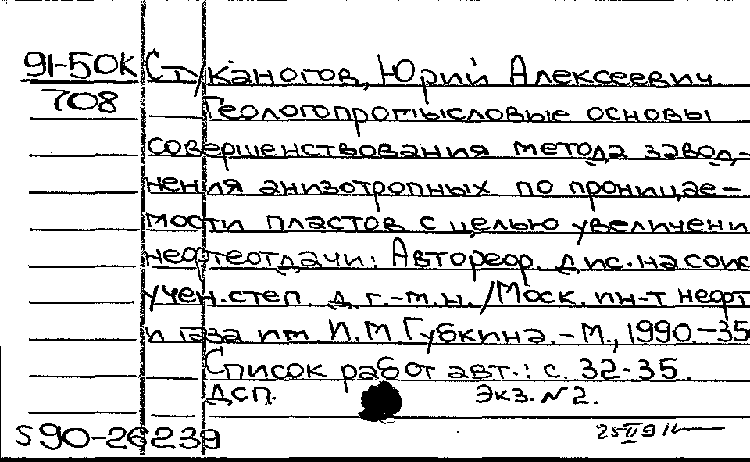 91-50К Стуканогов, Юрий Алексеевич
708 Геологопромысловые основы
совершенствования метода завод-
нения анизотропных по проницае-
мости пластов с целью увеличени
нефтеотдачи: Автореф. дис. на соис
учен. степ. д. г.-м.н. /Моск. ин-т нефт
и газа им И.М Губкина. - М., 1990. - 35
Список работ авт.: с. 32-35.
ДСП. Экз. №2.
590-26239